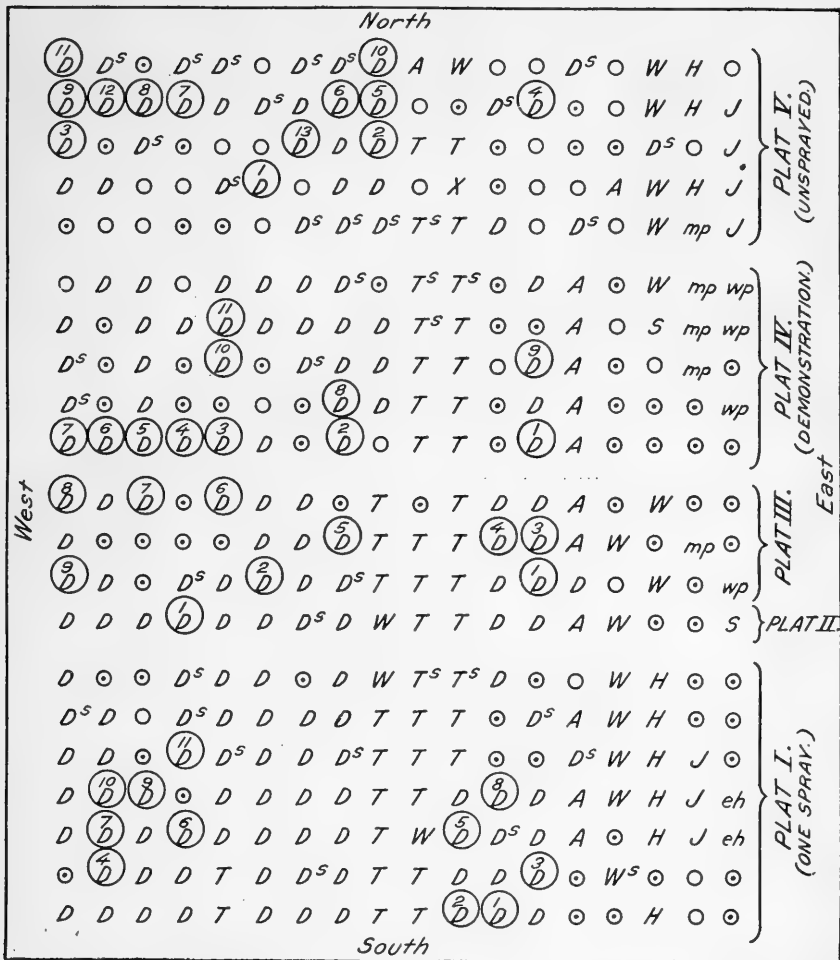 North
11D Dˢ ⊙ Dˢ Dˢ ○ Dˢ Dˢ 10D A W ○ ○ Dˢ ○ W H ○
9D 12D 8D 7D D Dˢ D 6D 5D ○ ⊙ Dˢ 4D ⊙ ○ W H J
3D ⊙ Dˢ ⊙ ○ ○ 13D D 2D T T ⊙ ○ ⊙ ⊙ Dˢ ○ J
D D ○ ○ Dˢ 1D ○ D D ○ X ⊙ ○ ○ A W H J
⊙ ○ ○ ⊙ ⊙ ○ Dˢ Dˢ Dˢ Tˢ T D ○ Dˢ ○ W mp J
PLAT V.
(UNSPRAYED.)
○ D D ○ D D D Dˢ ⊙ Tˢ Tˢ ⊙ D A ⊙ W mp wp
D ⊙ D D 11D D D D D Tˢ T ⊙ ⊙ A ○ S mp wp
Dˢ ⊙ D ⊙ 10D ⊙ Dˢ D D T T ○ 9D A ⊙ ○ mp ⊙
Dˢ ⊙ D ⊙ ⊙ ○ ⊙ 8D D T T ⊙ D A ⊙ ⊙ ⊙ wp
7D 6D 5D 4D 3D D ⊙ 2D ○ T T ⊙ 1D A ⊙ ⊙ ⊙ ⊙
PLAT IV.
(DEMONSTRATION.)
West
East
8D D 7D ⊙ 6D D D ⊙ T ⊙ T D D A ⊙ W ⊙ ⊙
D ⊙ ⊙ ⊙ ⊙ D D 5D T T T 4D 3D A W ⊙ mp ⊙
9D D ⊙ Dˢ D 2D D Dˢ T T T D 1D D ○ W ⊙ wp
PLAT III.
D D D 1D D D Dˢ D W T T D D A W ⊙ ⊙ S
PLAT II.
D ⊙ ⊙ Dˢ D D ⊙ D W Tˢ Tˢ D ⊙ ○ W H ⊙ ⊙
Dˢ D ○ Dˢ D D D D T T T ⊙ Dˢ A W H ⊙ ⊙
D D ⊙ 11D Dˢ D D Dˢ T T T ⊙ ⊙ Dˢ W H J ⊙
D 10D 9D ⊙ D D D D T T D 8D D A W H J eh
D 7D D 6D D D D D T W 5D Dˢ D A ⊙ H J eh
⊙ 4D D D T D Dˢ D T T D D 3D ⊙ Wˢ ⊙ ○ ⊙
D D D D T D D D T T 2D 1D D ⊙ ⊙ H ○ ⊙
PLAT I.
(ONE SPRAY.)
South